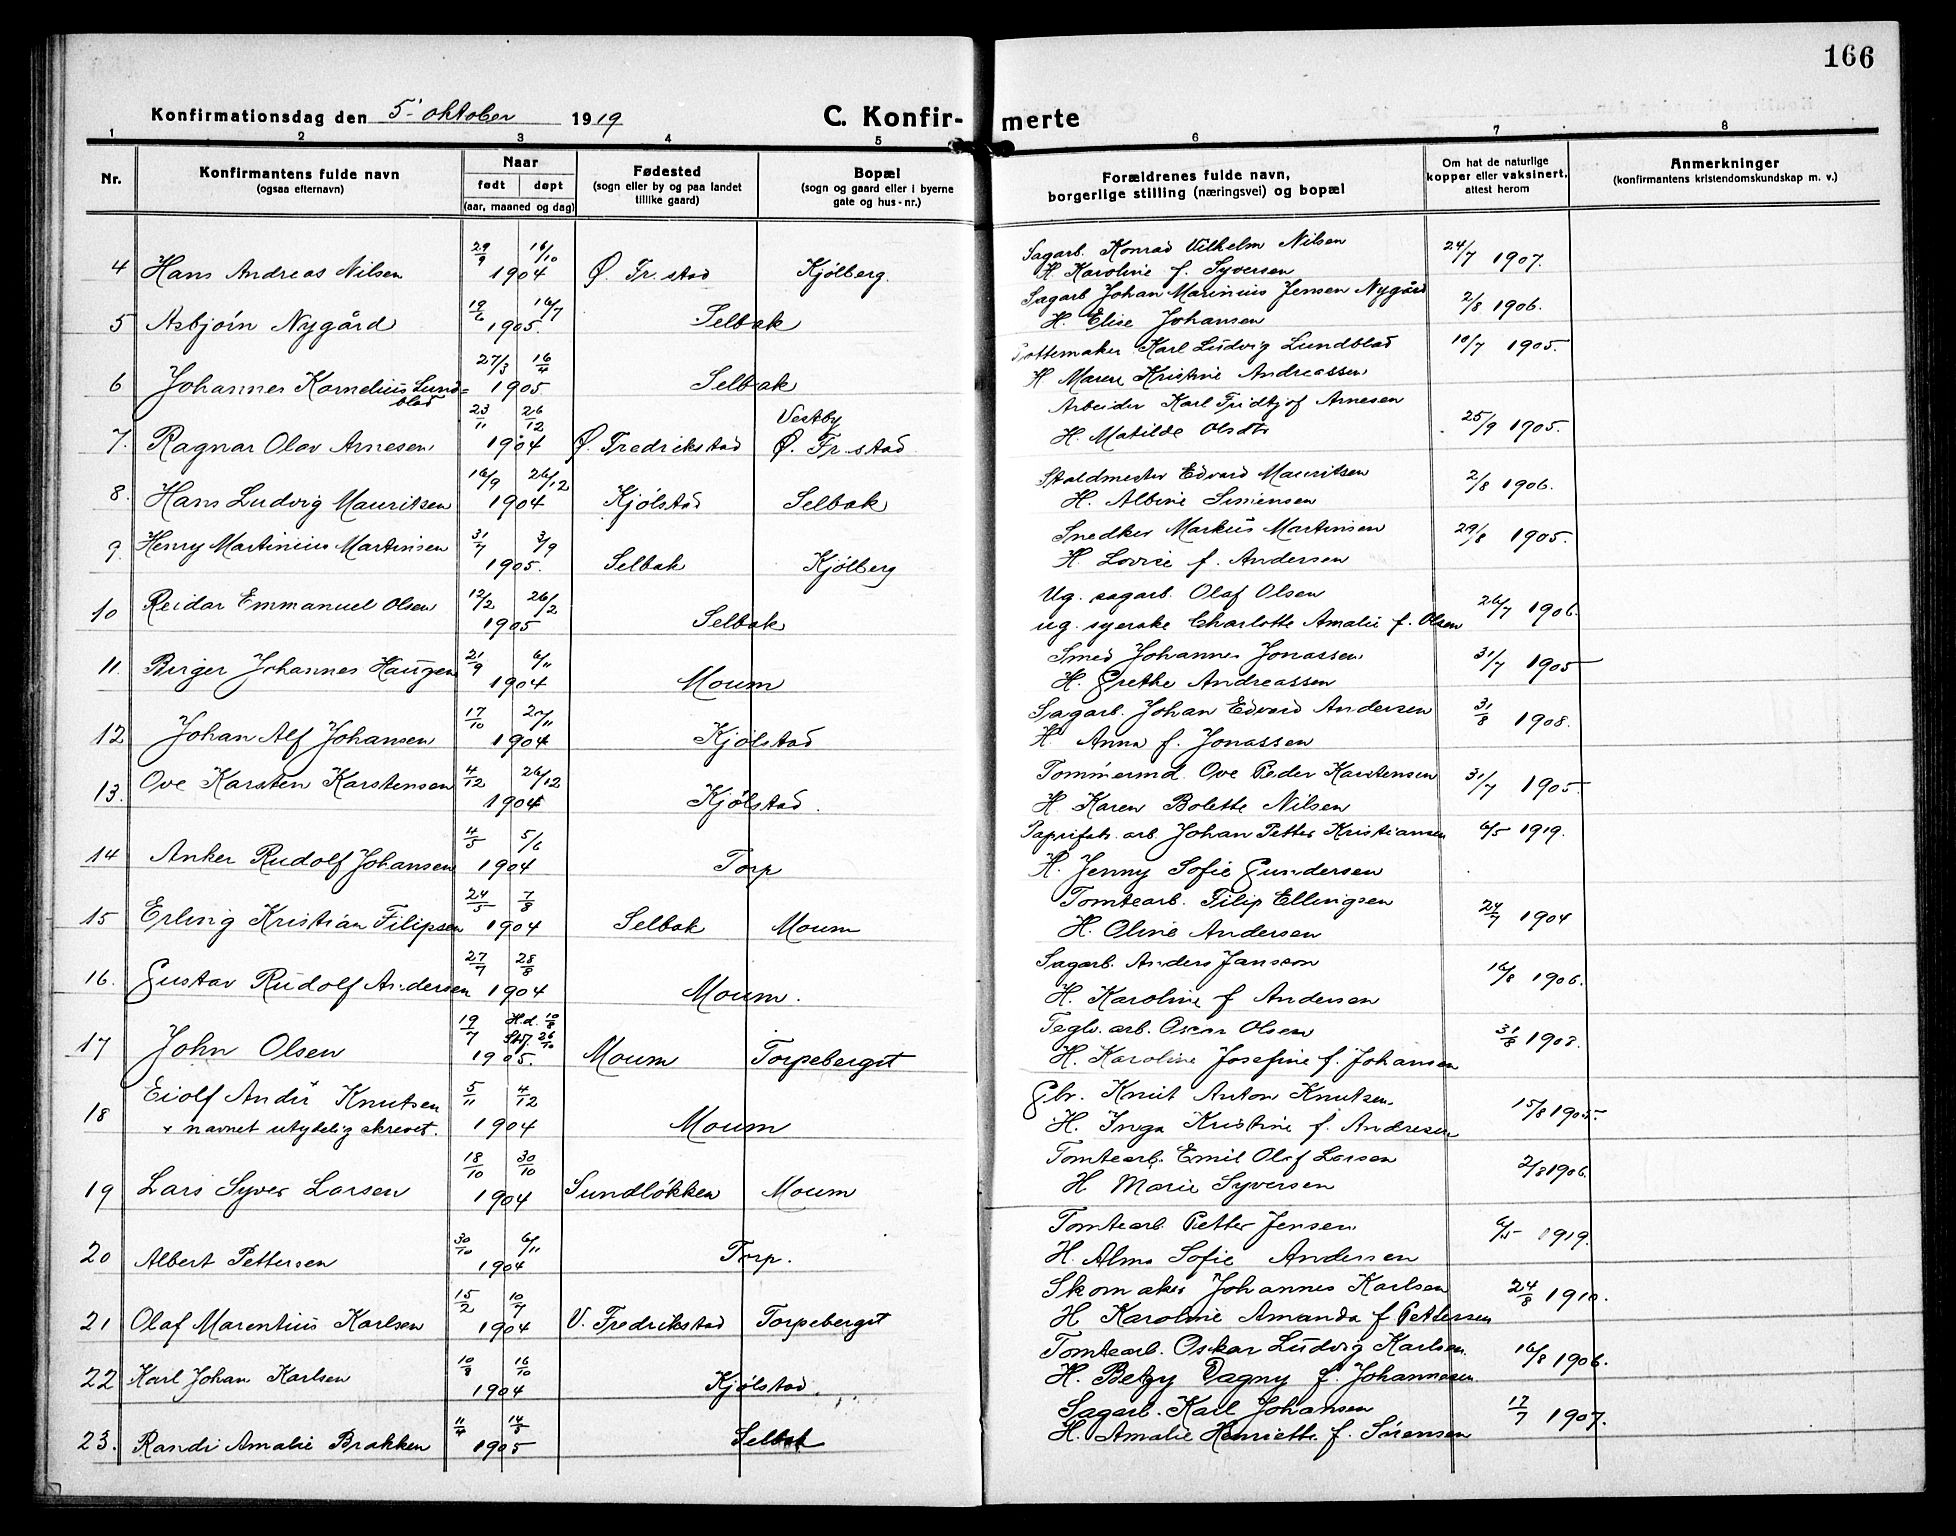 166
Konfirmationsdag den 5' oktober 1919
C. Konfir- merte
1 2 3 4 5 6 7 8
Nr.
Konfirmantens fulde navn
(ogsaa efternavn)
Naar
født døpt
(aar, maaned og dag)
Fødested
(sogn eller by og paa landet
tillike gaard)
Bopæl
(sogn og gaard eller i byerne
gate og hus-nr.)
Forældrenes fulde navn,
borgerlige stilling (næringsvei) og bopæl
Om hat de naturlige
kopper eller vaksinert,
attest herom
Anmerkninger
(konfirmantens kristendomskundskap m. v.)
29/9 16/10 Sagarb. Konrad Vilhelm Nilsen 24/7 1907.
4 Hans Andreas Nilsen 1904 Ø. Fr.stad Kjølberg. H. Karoline f. Syversen
19/6 16/7 Sagarb Johan Marinius Jensen Nygård 2/8 1906.
5 Asbjørn Nygård 1905. Selbak H. Elise Johansen
27/3 16/4 Pottemaker Karl Ludvig Lundblad 10/7 1905.
6 Johannes Kornelius Lund= 1905 Selbak H Maren Kristine Andreassen
blad
23/11 26/12 Vestby Arbeider Karl Fridtjof Arnesen 25/9 1905.
7. Ragnar Olav Arnesen 1904 Ø. Fredrikstad Ø. Fr.stad H. Matilde Olsdtr
16/9 26/12 Staldmester Edvard Mauritsen 2/8 1906.
8. Hans Ludvig Mauritsen 1904 Kjølstad Selbak H. Albine Simensen
9. Henry Martinius Martinsen 31/7 3/9 Snedker Markus Martinsen 29/8 1905.
1905. Selbak Kjølberg H. Lovise f. Andersen
10 Reidar Emmanuel Olsen 12/2 26/2 Ug. sagarb. Olaf Olsen 26/7 1906.
1905 Selbak ug. syerske Charlotte Amalie f. Olsen
11. Birger Johannes Haugen 21/9 6/11 Smed Johannes Jonassen 31/7 1905
1904 Moum H. Grethe Andreassen
17/10 27/11 Sagarb. Johan Edvard Andersen 31/8 1908.
12 Johan Alf Johansen 1904 Kjølstad H. Anna f. Jonassen
13. Ove Karsten Karstensen 4/12 26/12 Tømmermd. Ove Peder Karstensen 31/7 1905.
1904 Kjølstad. H Karen Bolette Nilsen
4/5 5/6 Paprifab. arb. Johan Petter Kristiansen 6/5 1919.
14 Anker Rudolf Johansen 1904 Torp H. Jenny Sofie Gundersen
24/5 7/8 Tomtearb. Filip Ellingsen 24/7 1904
15 Erling Kristian Filipsen 1904 Selbak Moum H. Oline Andersen
27/7 28/8 Sagarb. Anders Jansson 16/8 1906.
16. Gustav Rudolf Andersen 1904 Moum. H. Karoline f Andersen
19/7 H.d. 10/8 Teglv. arb. Oscar Olsen 31/8 1908.
Stdf. 26/10
17 John Olsen 1905. Moum Torpeberget H. Karoline Josefine f. Johansen
Eiolf André Knutsen 5/11 4/12 Gbr. Knut Anton Knutsen. 15/8 1905.
18 × navnet utydelig skrevet. 1904 Moum H. Inga Kristine f. Andresen
18/10 30/10 Tomtearb. Emil Olaf Larsen 2/8 1906.
19 Lars Syver Larsen 1904 Sundløkken Moum H. Marie Syversen
30/10 6/11 Tomtearb. Petter Jensen 6/5 1919.
20 Albert Pettersen 1904 Torp. H. Alma Sofie Andersen
15/2 10/7 Skomaker Johannes Karlsen 24/8 1910.
21 Olaf Marentius Karlsen 1904 V. Fredrikstad Torpeberget H Karoline Amanda f Pettersen
10/9 16/10 Tomtearb. Oskar Ludvig Karlsen. 16/8 1906.
22 Karl Johan Karlsen 1904 Kjølstad. H. Betzy Dagny f. Johannesen
11/4 14/5 Sagarb. Karl Johansen 17/7 1907.
23. Randi Amalie Brakken 1905 Selbak H. Amalie Henriette f. Sørensen